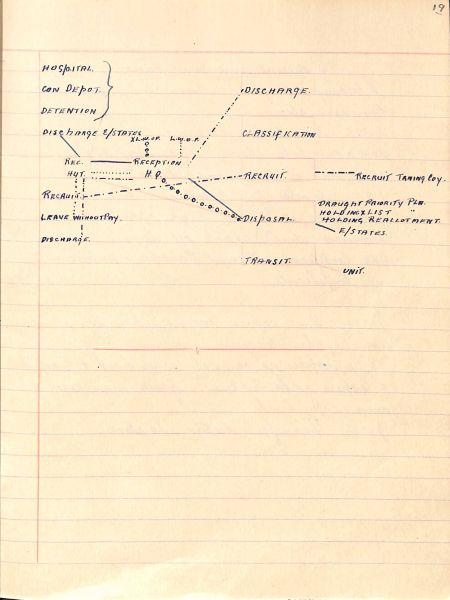 19
HOSPITAL.
CON DEPOT.
DETENTION
DISCHARGE.
DISCHARGE E/STATES
X L.W.OP. L.W.O.P.
CLASSIFICATION
REC. RECEPTION
HUT H.Q.
RECRUIT. RECRUIT TRAING COY.
RECRUIT.
DRAUGHT PRIORITY PLN.
HOLDING X LIST "
LEAVE WITHOUT PAY. DISPOSAL. HOLDING REALLOTMENT.
E/STATES.
DISCHARGE.
TRANSIT.
UNIT.